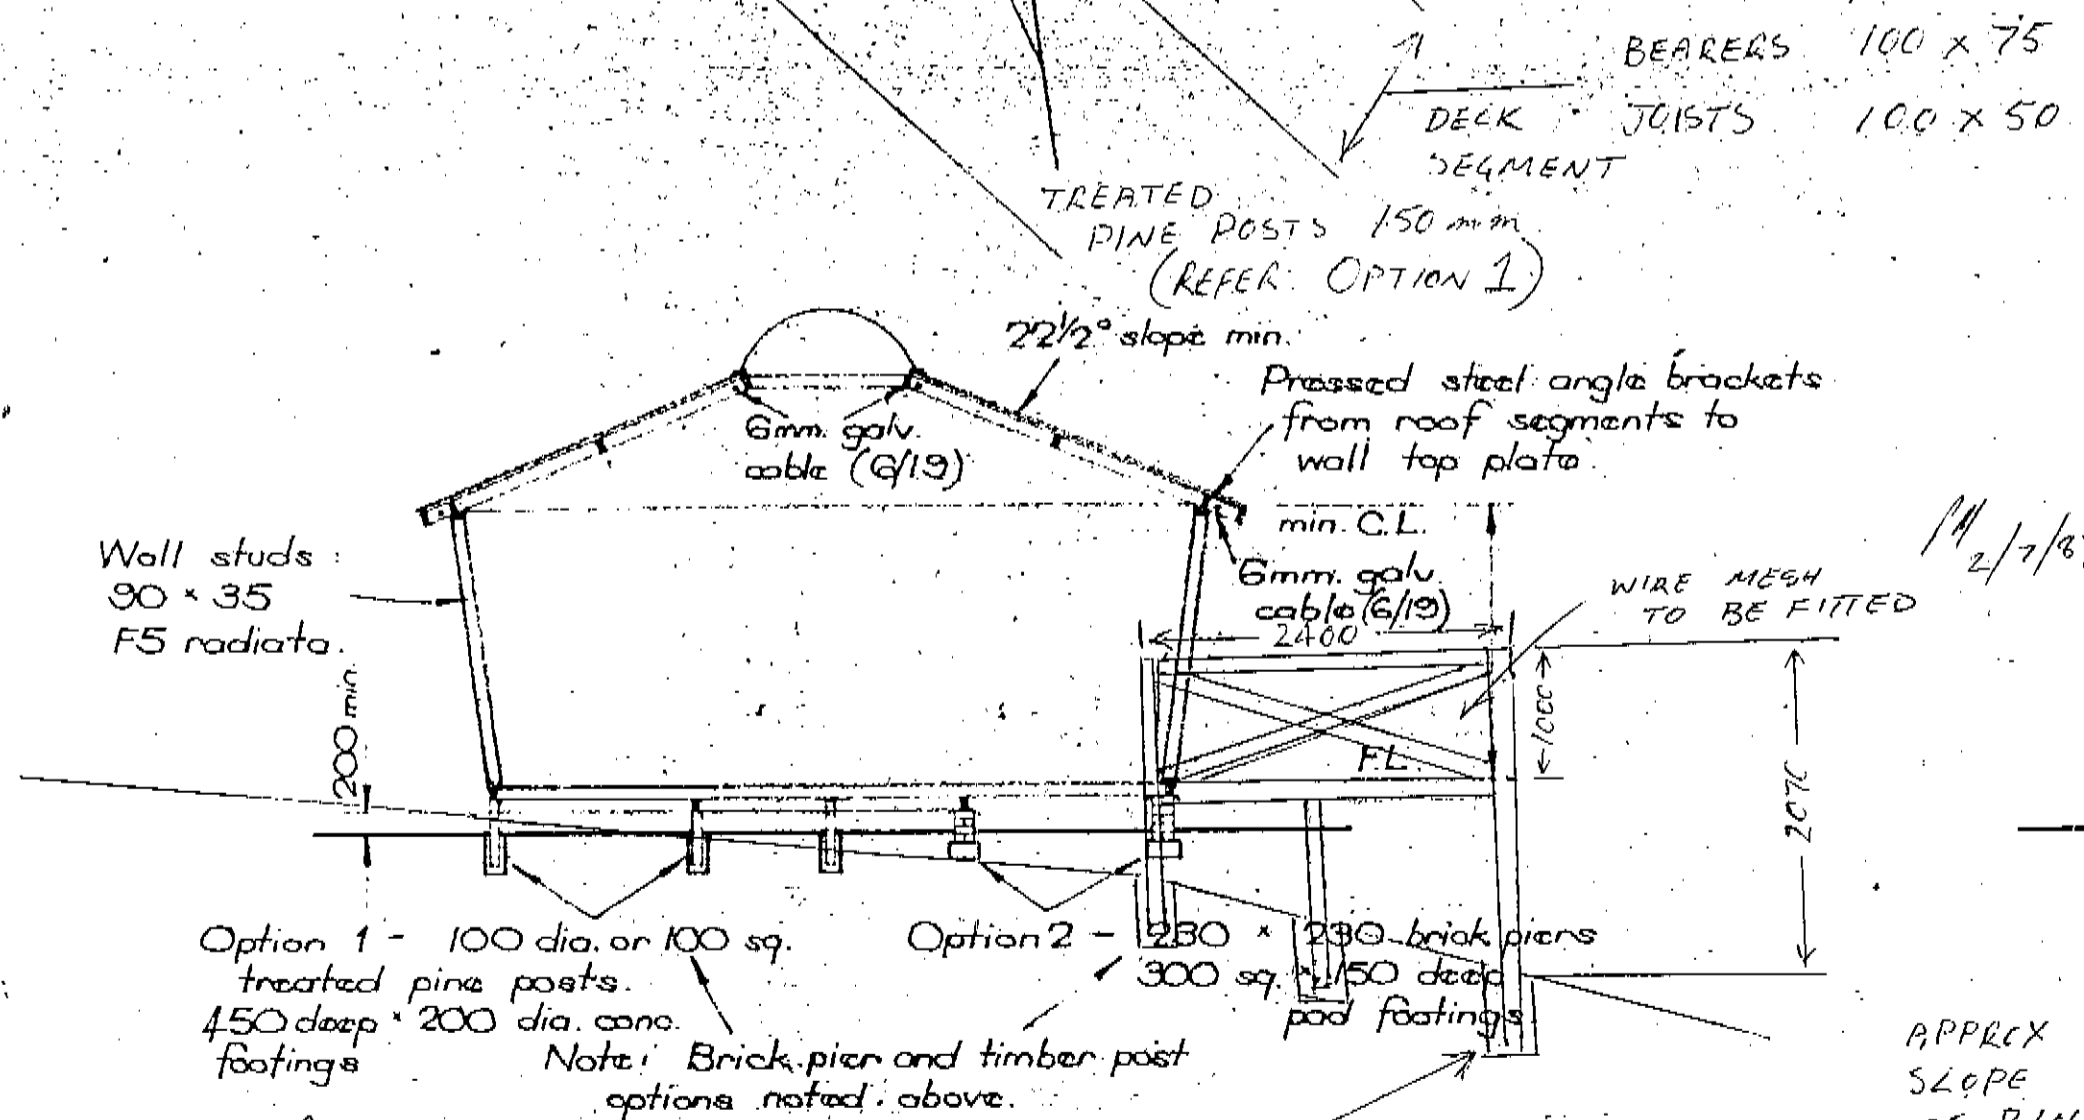 BEARERS 100 x 75
DECK JOISTS 100 x 50
SEGMENT
TREATED
PINE POSTS 150 mm
(REFER OPTION 1)
22½° slope min.
Pressed steel angle brackets
from roof segments to
wall top plate
6mm. galv.
cable (6/19)
min. C.L.
6mm. galv.
cable (6/19)
Wall studs :
90 x 35
F5 radiata.
2/7/8
WIRE MESH
TO BE FITTED
2400
200 min.
1000
F.L.
Option 1 - 100 dia. or 100 sq.
treated pine posts.
450 deep x 200 dia. conc.
footings
Option 2 - 230 x 230 brick piers
300 sq. x 150 deep
pad footings
Note: Brick pier and timber post
options noted above.
APPROX
SLOPE